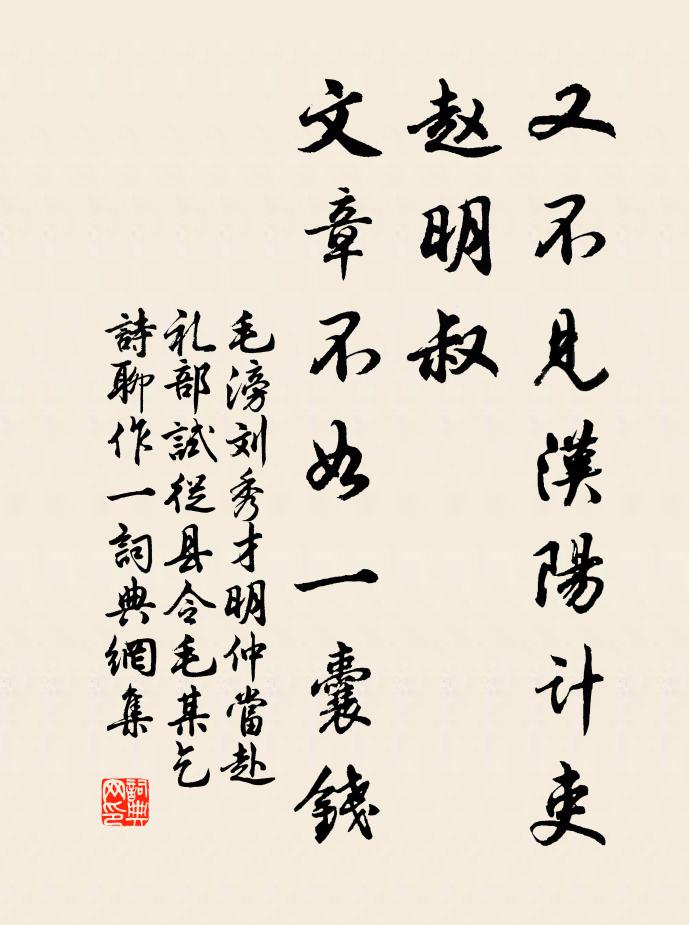 又不見漢陽計吏
赵明叔
文章不如一囊錢
毛滂刘秀才明仲當赴
礼部試從县令毛某乞
詩聊作一詞典網集
詞典网印